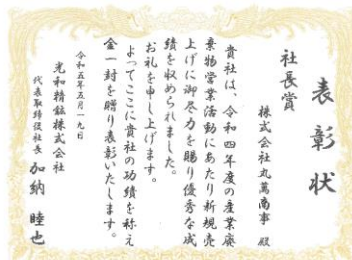 表彰状
社長賞
株式会社丸萬商事 殿
貴社は、令和四年度の産業廃
棄物営業活動にあたり新規売
上げに御尽力を賜り優秀な成
績を収められました。
お礼を申し上げます。
よってここに貴社の功績を称え
金一封を贈り表彰いたします。
令和五年五月一九日
光和精鉱株式会社
代表取締役社長 加納 睦也